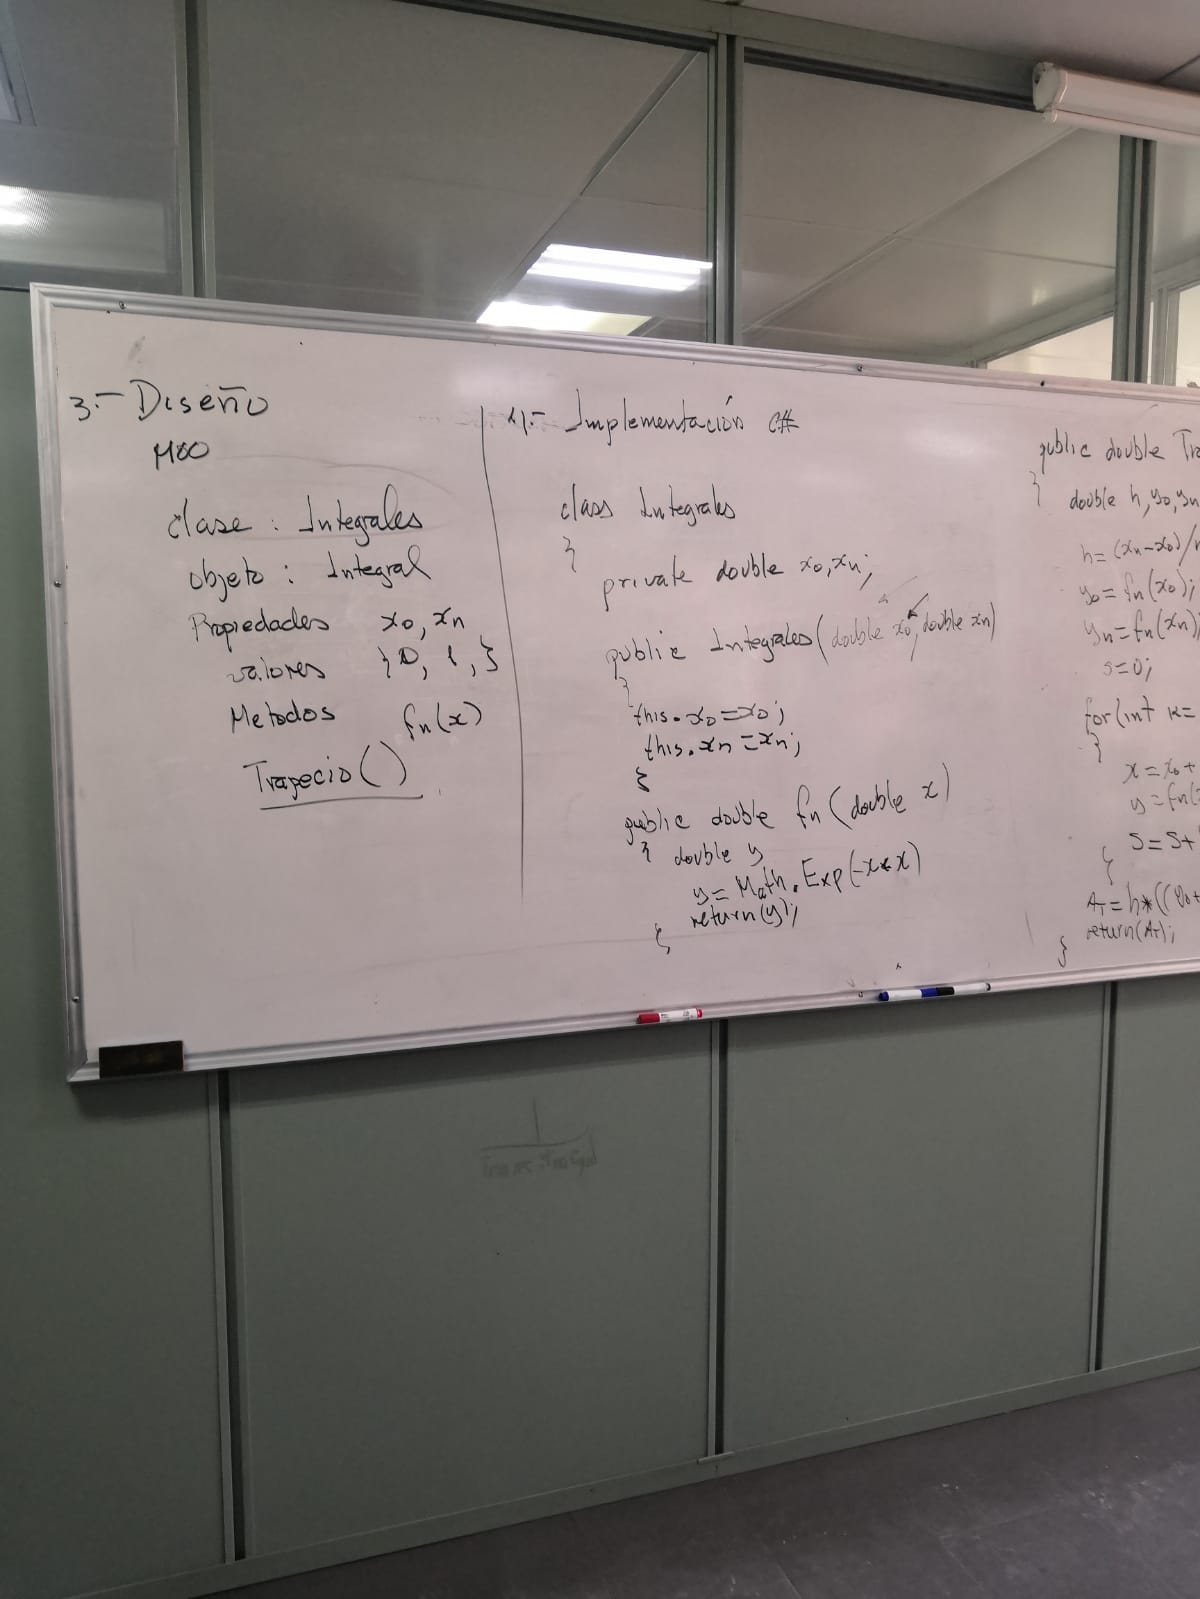 3.- Diseño
MOO
clase : Integrales
objeto : Integral
Propiedades x0, xn
valores {0, 1, }
Metodos fn(x)
Trapecio()
4.- Implementación C#
class Integrales
{
private double x0, xn;
public Integrales(double x0, double xn)
{
this.x0=x0;
this.xn=xn;
}
public double fn(double x)
{ double y
y=Math.Exp(-x*x)
return(y);
}
public double Tra
{
double h, y0, yn
h=(xn-x0)/n
y0=fn(x0);
yn=fn(xn);
s=0;
for(int k=
{
x=x0+
y=fn(
S=S+
}
AT=h*((y0+
return(AT);
}